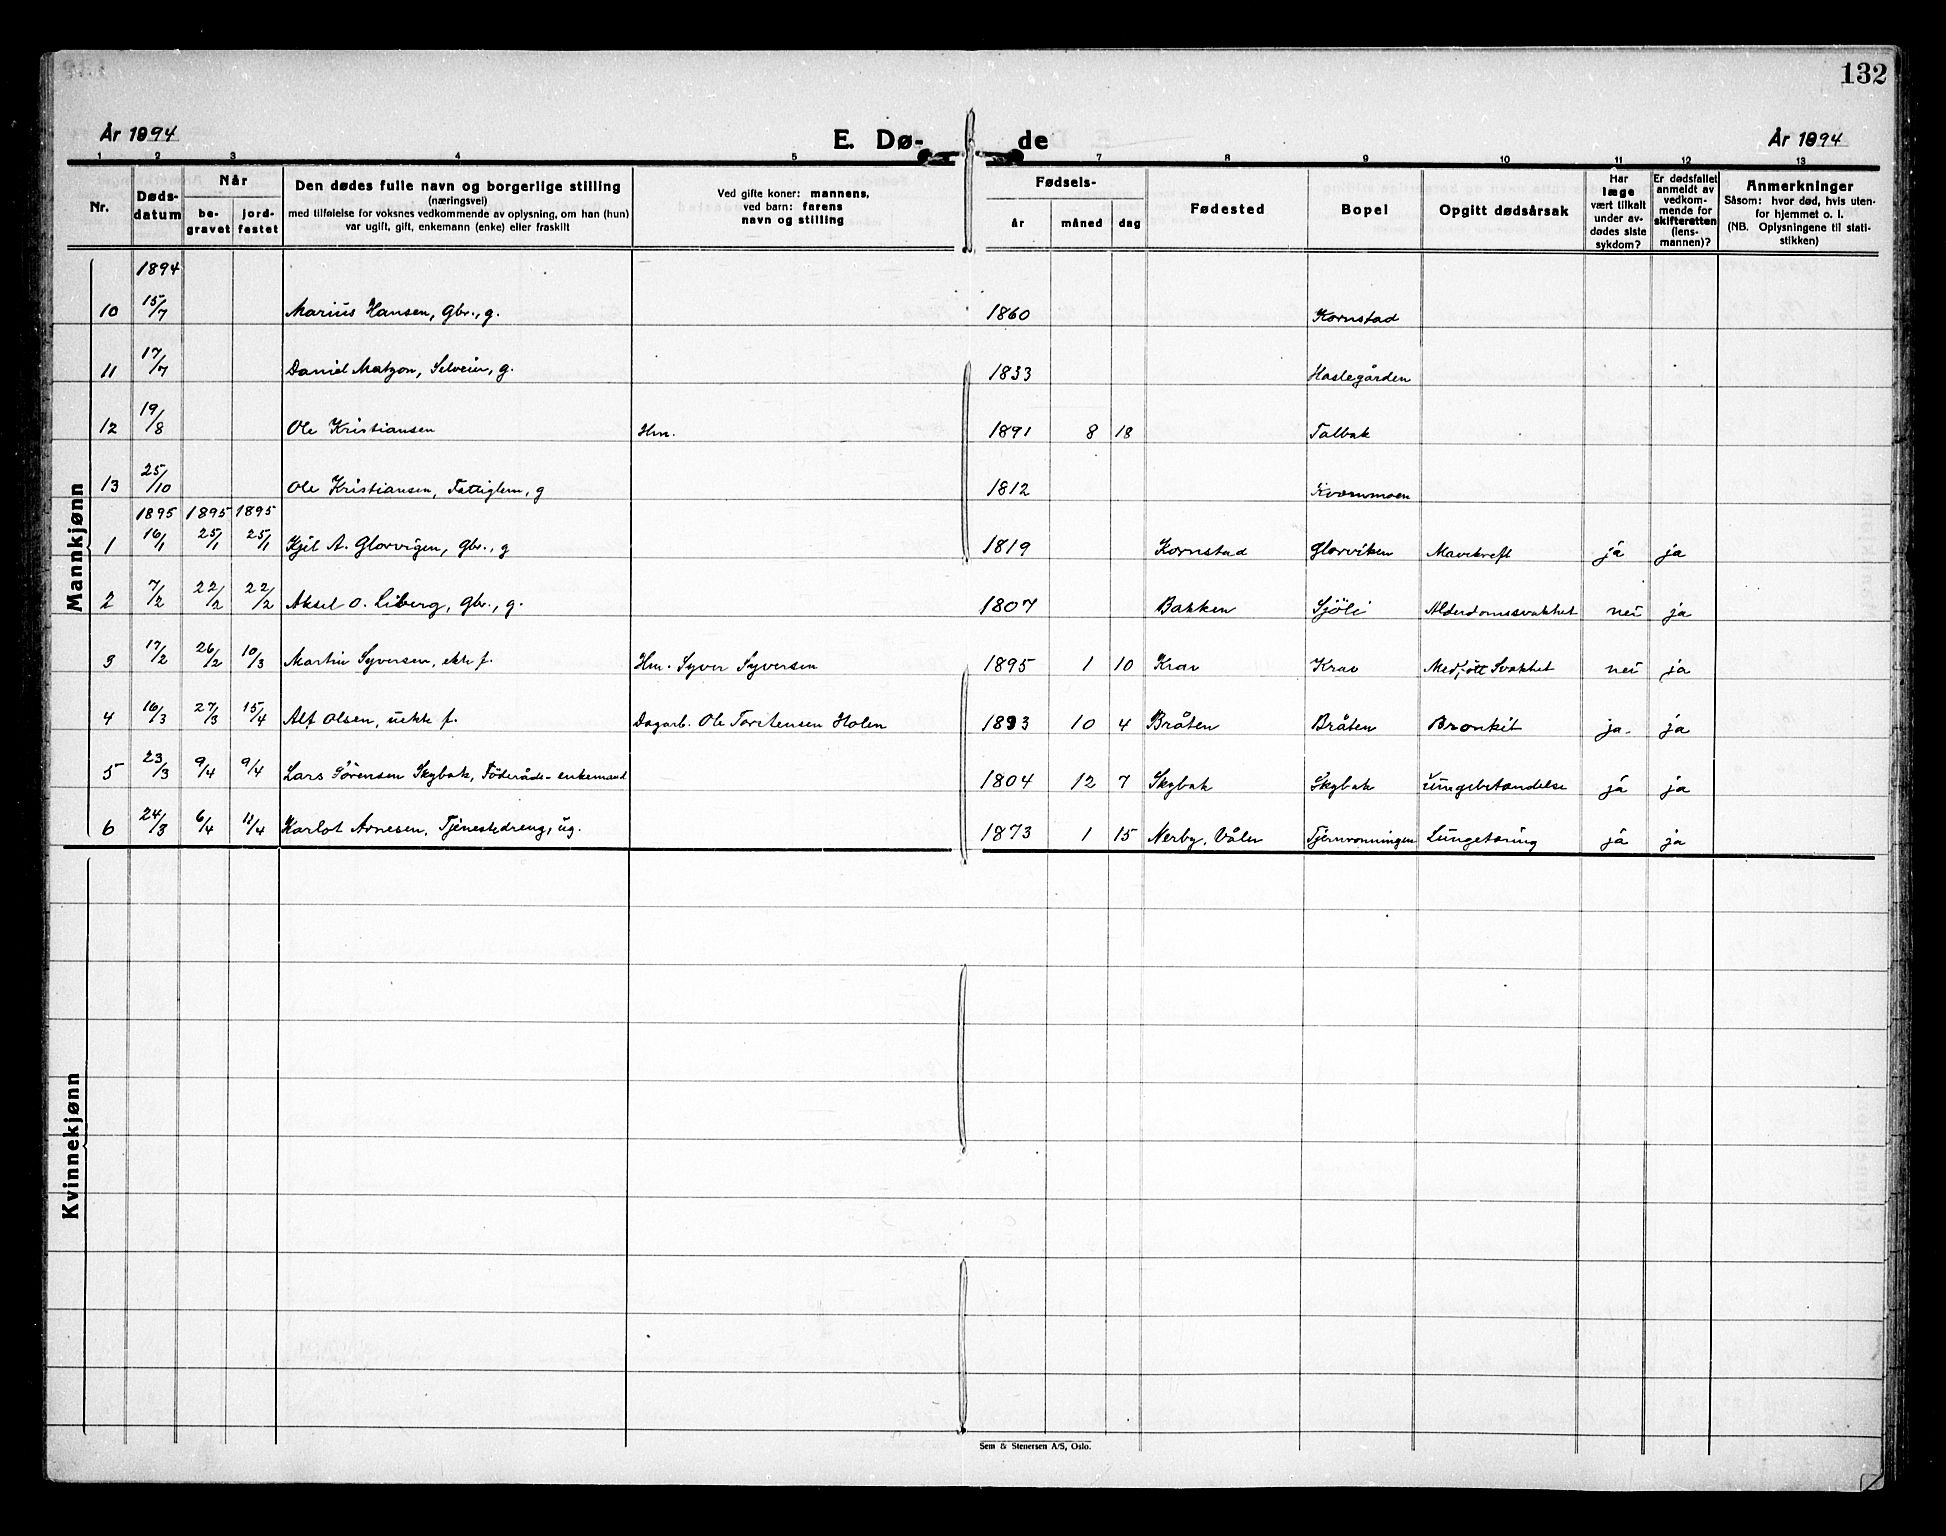 132
År 1894 E. Dø- de År 1894
1 2 3 4 5 7 8 9 10 11 12 13
Nr.
Døds-
datum
Når
be-
gravet
jord-
festet
Den dødes fulle navn og borgerlige stilling
(næringsvei)
med tilføielse for voksnes vedkommende av oplysning, om han (hun)
var ugift, gift, enkemann (enke) eller fraskilt
Ved gifte koner: mannens,
ved barn: farens
navn og stilling
Fødsels-
år måned dag
Fødested
Bopel
Opgitt dødsårsak
Har
læge
vært tilkalt
under av-
dødes siste
sykdom?
Er dødsfallet
anmeldt av
vedkom-
mende for
skifteretten
(lens-
mannen)?
Anmerkninger
Såsom: hvor død, hvis uten-
for hjemmet o. l.
(NB. Oplysningene til stati-
stikken)
Mannkjønn
1894
10 15/7 Marius Hansen, Gbr., g. 1860 Kornstad
11 17/7 Daniel Matzon, Selveier, g. 1833 Haslegården
12 19/8 Ole Kristiansen Hm. 1891 8 18 Talbak
13 25/10 Ole Kristiansen, Fattiglem, g 1812 Kvernmoen
1895 1895 1895
1 16/1 25/1 25/1 Kjel A. Glorvigen, Gbr., g 1819 Kornstad Glorviken Mavekreft ja ja
2 7/2 22/2 22/2 Aksel O. Liberg, Gbr., g. 1807 Bakken Sjöli Alderdomssvakhet nei ja
3 17/2 26/2 10/3 Martin Syversen, ekte f. Hm. Syver Syversen 1895 1 10 Krav Krav Medfött Svakhet nei ja
4 16/3 27/3 15/4 Alf Olsen, uekte f. Dagarb. Ole Torstensen Holen 1893 10 4 Bråten Bråten Bronkit ja. ja
5 23/3 9/4 9/4 Lars Sørensen Skybak, Föderåds-enkemand 1804 12 7 Skybak Skybak Lungebetændelse ja ja
6 24/3 6/4 11/4 Karlot Arnesen, Tjenestedreng, ug. 1873 1 15 Nerby, Våler Tjernrønningen Lungetæring ja ja
Kvinnekjønn
Sem & Stenersen A/S, Oslo.